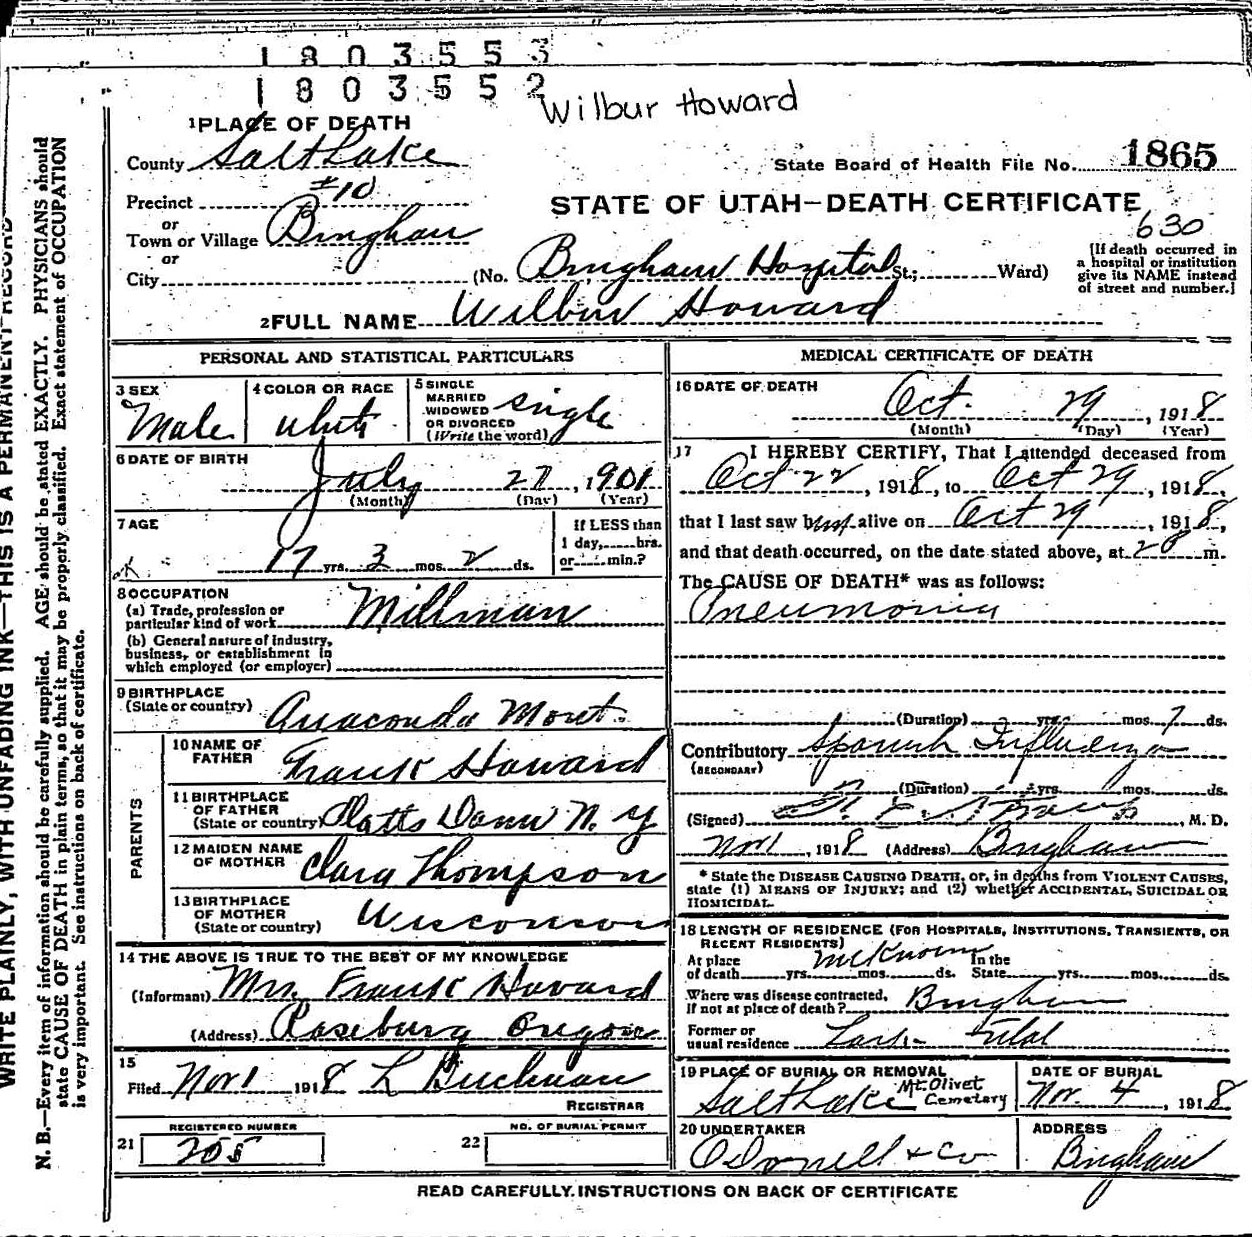 1803553
1803552
Wilbur Howard
1 PLACE OF DEATH
County Salt Lake
State Board of Health File No. 1865
Precinct #10
STATE OF UTAH—DEATH CERTIFICATE
630
or
Town or Village Bingham
or
City (No. Bingham Hospital St.; Ward)
[If death occurred in a hospital or institution give its NAME instead of street and number.]
2 FULL NAME Wilbur Howard
PERSONAL AND STATISTICAL PARTICULARS
3 SEX Male
4 COLOR OR RACE white
5 SINGLE MARRIED WIDOWED OR DIVORCED (Write the word) single
6 DATE OF BIRTH
July 27, 1901
(Month) (Day) (Year)
7 AGE
17 yrs. 3 mos. 2 ds.
If LESS than 1 day, hrs. or min.?
8 OCCUPATION
(a) Trade, profession or particular kind of work Millman
(b) General nature of industry, business, or establishment in which employed (or employer)
9 BIRTHPLACE
(State or country) Anaconda Mont.
PARENTS
10 NAME OF FATHER Frank Howard
11 BIRTHPLACE OF FATHER (State or country) N. Y
12 MAIDEN NAME OF MOTHER Clara Thompson
13 BIRTHPLACE OF MOTHER (State or country) Wisconson
14 THE ABOVE IS TRUE TO THE BEST OF MY KNOWLEDGE
(Informant) Mrs Frank Howard
(Address) Roseburg Oregon
15
Filed Nov 1 1918 L Buchman
REGISTRAR
REGISTERED NUMBER
21 205
NO. OF BURIAL PERMIT
22
MEDICAL CERTIFICATE OF DEATH
16 DATE OF DEATH
Oct. 29, 1918
(Month) (Day) (Year)
17 I HEREBY CERTIFY, That I attended deceased from
Oct 22, 1918, to Oct 29, 1918,
that I last saw him alive on Oct 29, 1918,
and that death occurred, on the date stated above, at m.
The CAUSE OF DEATH* was as follows:
Pneumonia
(Duration) yrs. mos. 7 ds.
Contributory Spanish Influenza
(SECONDARY)
(Duration) yrs. mos. ds.
(Signed) , M. D.
Nov 1, 1918 (Address) Bingham
* State the DISEASE CAUSING DEATH, or, in deaths from VIOLENT CAUSES, state (1) MEANS OF INJURY; and (2) whether ACCIDENTAL, SUICIDAL OR HOMICIDAL.
18 LENGTH OF RESIDENCE (FOR HOSPITALS, INSTITUTIONS, TRANSIENTS, OR RECENT RESIDENTS)
At place of death yrs. mos. ds. In the State yrs. mos. ds.
Where was disease contracted, if not at place of death? Bingham
Former or usual residence Lark Utah
19 PLACE OF BURIAL OR REMOVAL
Salt Lake Mt. Olivet Cemetery
DATE OF BURIAL
Nov. 4, 1918
20 UNDERTAKER
O'Donnell & Co
ADDRESS
Bingham
READ CAREFULLY INSTRUCTIONS ON BACK OF CERTIFICATE
WRITE PLAINLY, WITH UNFADING INK—THIS IS A PERMANENT RECORD
N. B.—Every item of information should be carefully supplied. AGE should be stated EXACTLY. PHYSICIANS should
state CAUSE OF DEATH in plain terms, so that it may be properly classified. Exact statement of OCCUPATION
is very important. See instructions on back of certificate.